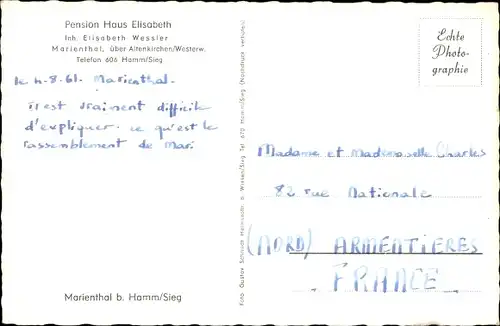 Pension Haus Elisabeth
Inh. Elisabeth Wessler
Marienthal, über Altenkirchen/Westerw.
Telefon 606 Hamm/Sieg
le 4-8.61. Marienthal.
Il est vraiment difficile
d'expliquer ce qu'est le
rassemblement de Mari
Marienthal b. Hamm/Sieg
Foto Gustav Schmidt b. Wissen/Sieg Tel. 670 Hamm/Sieg (Nachdruck verboten)
Echte
Photo-
graphie
Madame et Mademoiselle Charles
82 rue Nationale
(NORD) ARMENTIERES
FRANCE